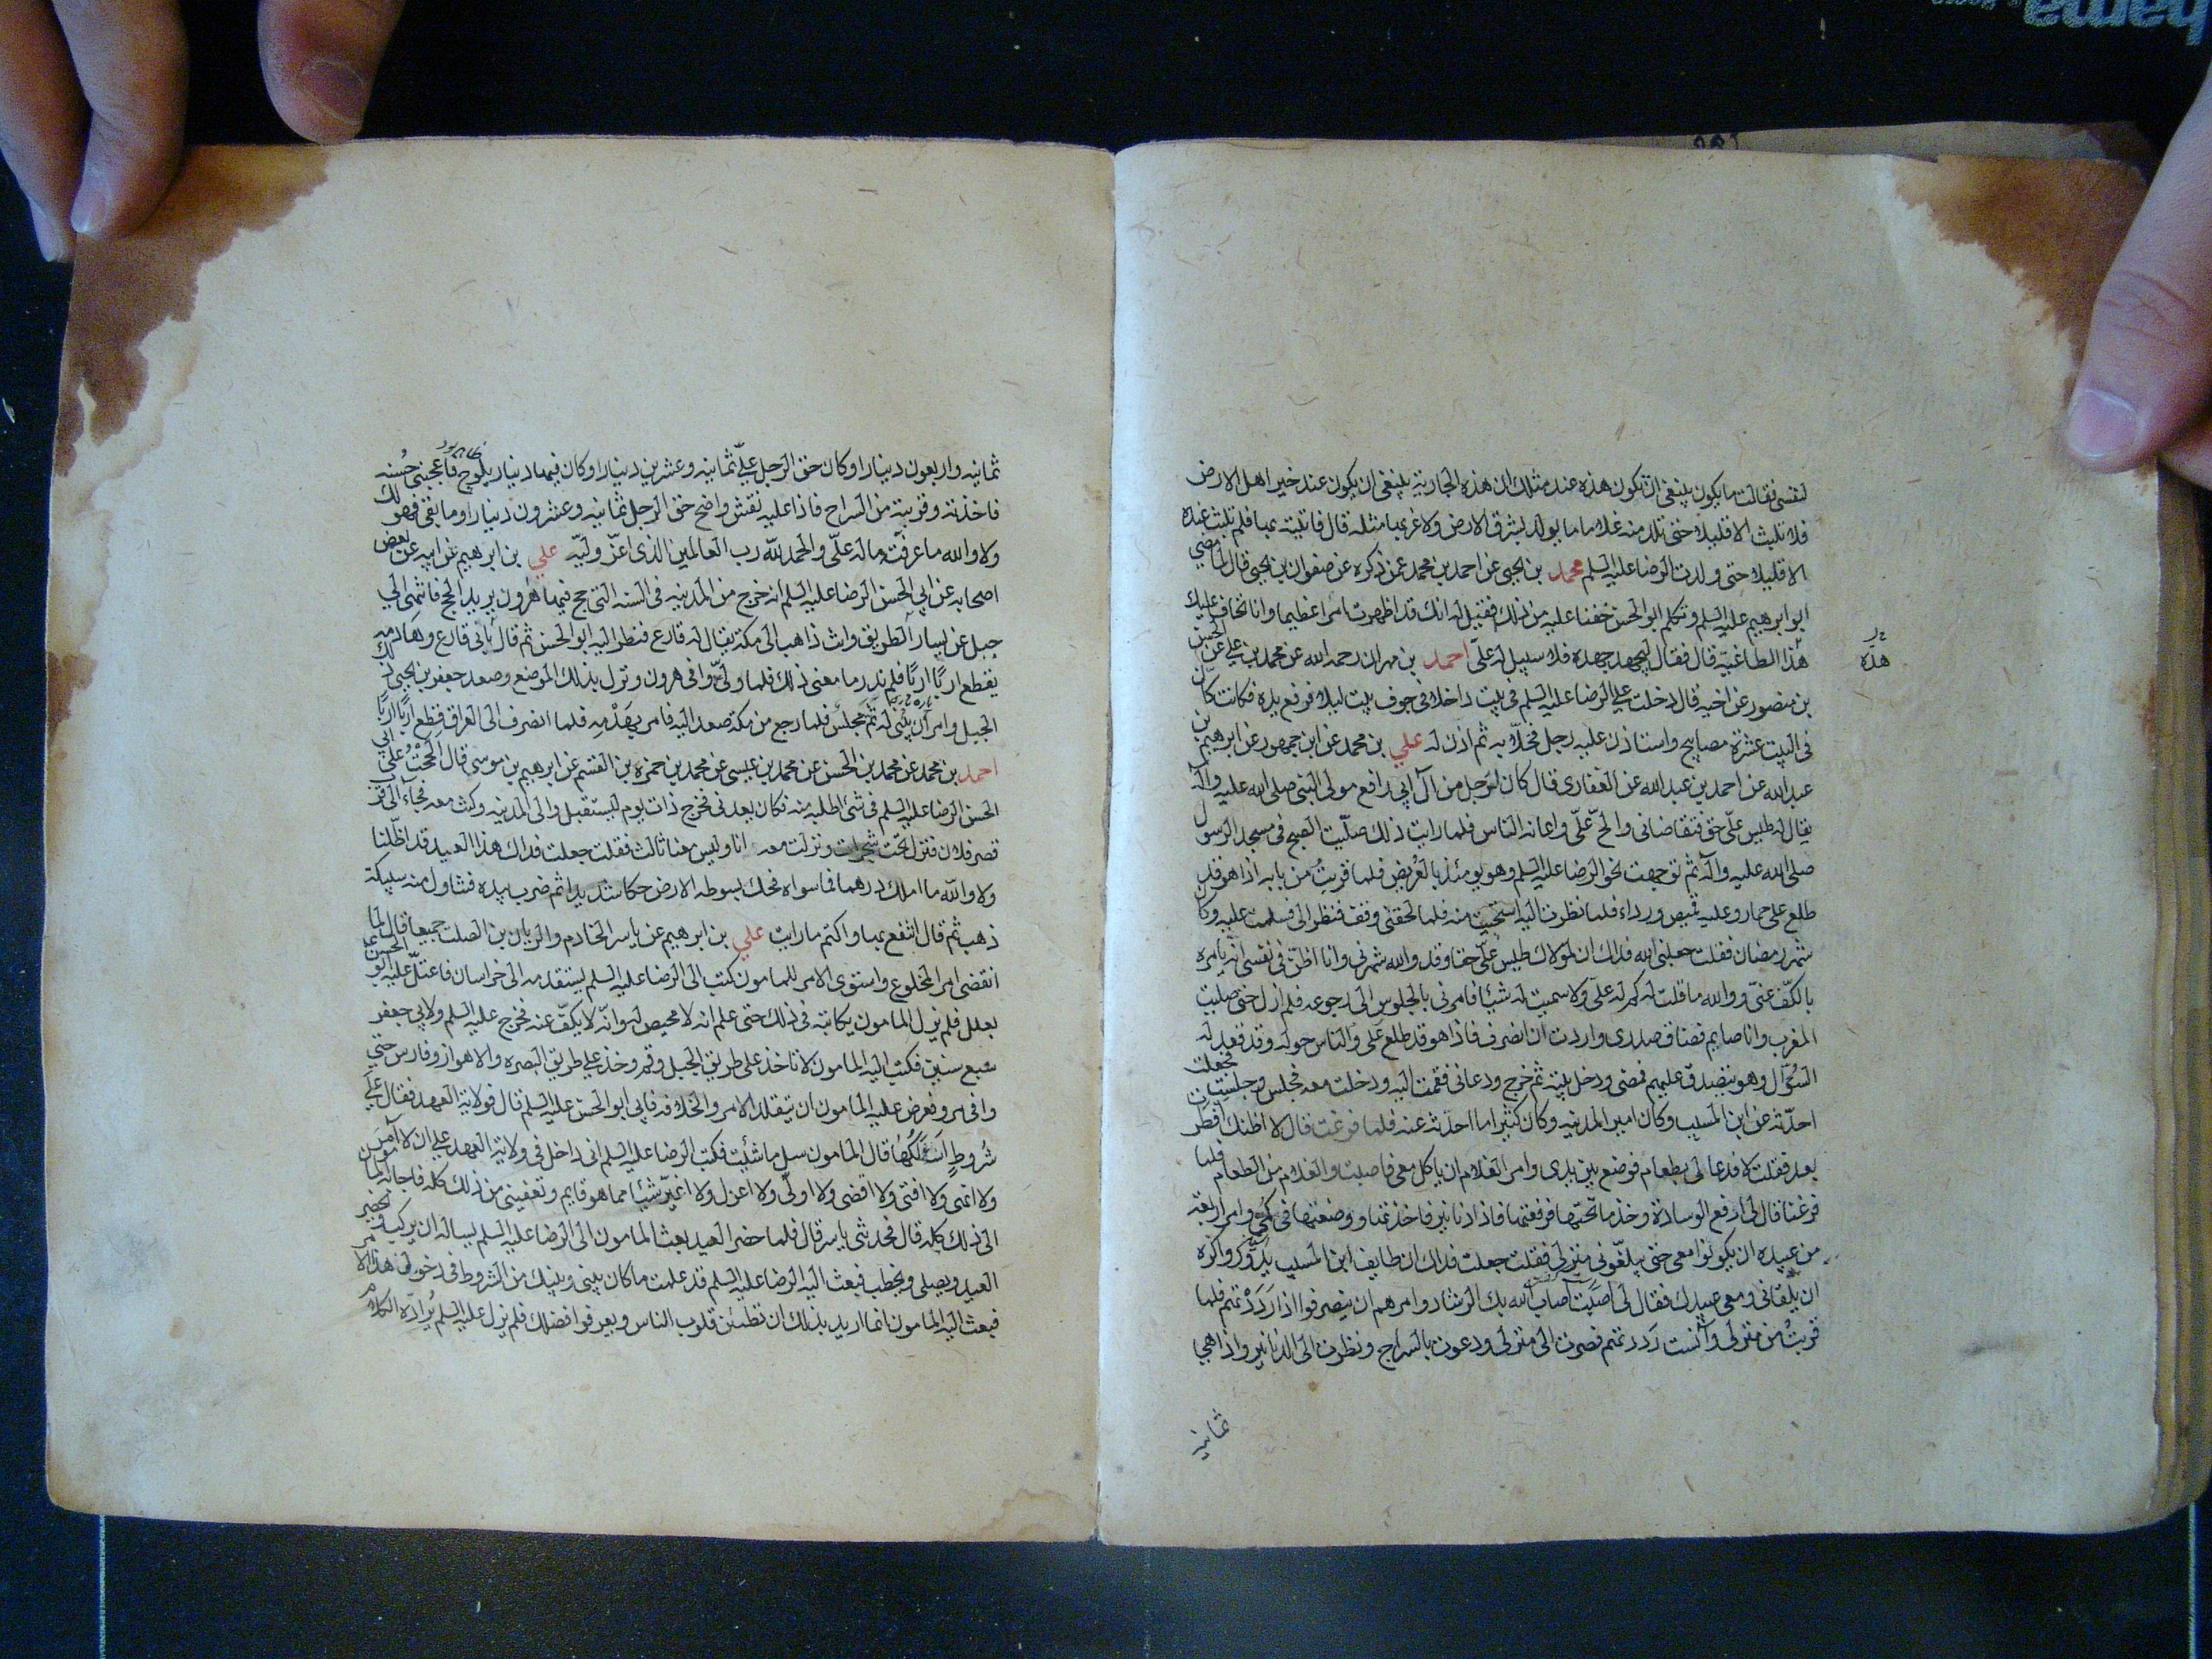 لنفسي فقالت ما يكون ينبغي ان تكون هذه عند مثلك ان هذه الجارية ينبغي ان يكون عند خير اهل الارض
فلا تلبث الا قليلا حتى تلد منه غلاما ما يولد بشرق الارض ولا غربها مثله قال فاتيته بها فلم تلبث عنده
الا قليلا حتى ولدت الرضا عليه السلم محمد بن يحيى عن احمد بن محمد عمن ذكره عن صفوان بن يحيى قال لما مضي
ابو ابرهيم عليه السلم وتكلم ابو الحسن خفنا عليه من ذلك فقيل له انك قد اظهرت امرا عظيما وانا نخاف عليك
هذا الطاغية قال فقال ليجهد جهده فلا سبيل له عليّ احمد بن مهران رحمه الله عن محمد بن علي عن الحسن
هذه
بن منصور عن اخيه قال دخلت علي الرضا عليه السلم في بيت داخل في جوف بيت ليلا فرفع يده فكانت كانّ
في البيت عشرة مصابيح واستاذن عليه رجل فخلا يده ثم اذن له علي بن محمد عن ابن جمهور عن ابرهيم بن
عبد الله عن احمد بن عبد الله عن الغفاري قال كان لرجل من آل ابي رافع مولى النبي صلى الله عليه وآله
يقال له طيس عليّ حق فتقاضاني والحّ عليّ واعانه الناس فلما رايت ذلك صلّيت الصبح في مسجد الرسول
صلى الله عليه وآله ثم توجهت نحو الرضا عليه السلم وهو يومئذ بالعُريض فلما قربتُ من بابه اذا هو قد
طلع على حمار وعليه قميص ورداء فلما نظرت اليه استحييت منه فلما لحقني وقف فنظر الى فسلمت عليه وكان
شهر رمضان فقلت جعلني الله فداك ان لمولاك طيس عليّ حقا وقد والله شهرني وانا اظن في نفسي انه يامره
بالكفّ عنيّ ووالله ما قلت له كم له عليّ ولا سميت له شيئا فامرني بالجلوس الى رجوعه فلم ازل حتى صليت
المغرب وانا صايم فضاق صدري واردت ان انصرف فاذا هو قد طلع عليّ والناس حوله وقد قعد له
السؤّال وهو يتصدق عليهم فمضى ودخل بيته ثم خرج ودعاني فقمت اليه ودخلت معه فجلس وجلست فجعلت
احدّثه عن ابن المسيب وكان امير المدينه وكان كثيرا ما احدّثه عنه فلما فرغت قال لا اظنك افطرت
بعد فقلت لا فدعا لي بطعام فوضع بين يدي وامر الغلام ان ياكل معي فاصبت والغلام من الطعام فلما
فرغنا قال لي ارفع الوسادة وخذ ما تحتها فرفعتها فاذا دنانير فاخذتها ووضعتها في كُمّي وامر اربعة
من عبيده ان يكونوا معي حتى يبلغوني منزلي فقلت جعلت فداك ان طايف ابن المسيب يدور واكره
ان يلقاني ومعي عبيدك فقال لي اصبت اصاب الله بك الرشاد وامرهم ان ينصرفوا اذا رَدَدْتهم فلما
قربتُ من منزلي وآنست رددتهم فصرت الى منزلي ودعوت بالسراج ونظرت الى الدنانير واذا هي
ثمانيه
ثمانيه واربعون دينارا وكان حق الرجل عليّ ثمانيه وعشرين دينارا وكان فيها دينار يلوح فاعجبني حُسنه
فاخذته وقربته من السراج فاذا عليه نقش واضح حق الرجل ثمانيه وعشرون دينارا وما بقي فهو لك
ولا والله ما عرفت ما له عليّ والحمد لله رب العالمين الذي اعزّ وليّه علي بن ابرهيم عن ابيه عن بعض
اصحابه عن ابي الحسن الرضا عليه السلم انه خرج من المدينه في السنه التي حج فيها هٰرون يريد الحج فانتهى الي
جبل عن يسار الطريق وانت ذاهب الى مكة يقال له قارع فنظر اليه ابو الحسن ثم قال باني قارع وهادمه
يقطع اربًا اربًا فلم ندر ما معني ذلك فلما ولّى وافى هرون ونزل بذلك الموضع وصعد جعفر بن يحيى ذلك
الجبل وامر ان يبنى له ثم مجلس فلما رجع من مكة صعد اليه فامر بهَدْمِه فلما انصرف الى العراق قطع اربًا اربًا
احمد بن محمد عن محمد بن الحسن عن محمد بن عيسى عن محمد بن حمزه بن القسم عن ابرهيم بن موسى قال الححتُ علي ابي
الحسن الرضا عليه السلم في شئ اطلبه منه فكان يعدني فخرج ذات يوم ليستقبل والى المدينه وكنت معه فجاء الى قرب
قصر فلان فنزل تحت شجرات ونزلت معه انا وليس معنا ثالث فقلت جعلت فداك هذا العيد قد اظلّنا
ولا والله ما املك درهما فما سواه فحك بسوطه الارض حكا شديدا ثم ضرب بيده فتناول منه سبيكة
ذهب ثم قال انتفع بها واكتم ما رايت علي بن ابرهيم عن ياسر الخادم والريان بن الصلت جميعا قال لما
انقضى امر المخلوع واستوى الامر للمامون كتب الى الرضا عليه السلم يستقدمه الى خراسان فاعتلّ عليه ابو الحسن ع
بعلل فلم يزل المامون يكاتبه في ذلك حتى علم انه لا محيص له وانّه لا يكفّ عنه فخرج عليه السلم ولابي جعفر
سبع سنين فكتب اليه المامون لا تاخذ على طريق الجبل وقم وخذ علي طريق البصره والاهواز وفارس حتي
وافى مرو فعرض عليه المامون ان يتقلد الامر والخلافه فابى ابو الحسن عليه السلم قال فولاية العهد فقال على
شُروطٍ اسَئلُكُها قال المامون سل ما شئت فكتب الرضا عليه السلم اني داخل في ولاية العهد علي ان لا آمرَ
ولا انهى ولا افتى ولا اقضى ولا اولّى ولا اعزل ولا اغيّر شيئا مما هو قايم وتعفيني من ذلك كله فاجابه المامون
الى ذلك كله قال فحدثني ياسر قال فلما حضر العيد بعث المامون الى الرضا عليه السلم يساله ان يركب ويحضر
العيد ويصلى ويخطب فبعث اليه الرضا عليه السلم قد علمت ما كان بيني وبينك من الشروط في دخول هذا الامر
فبعث اليه المامون انما اريد بذلك ان تطمئن قلوب الناس ويعرفوا فضلك فلم يزل عليه السلم يُرادّه الكلام